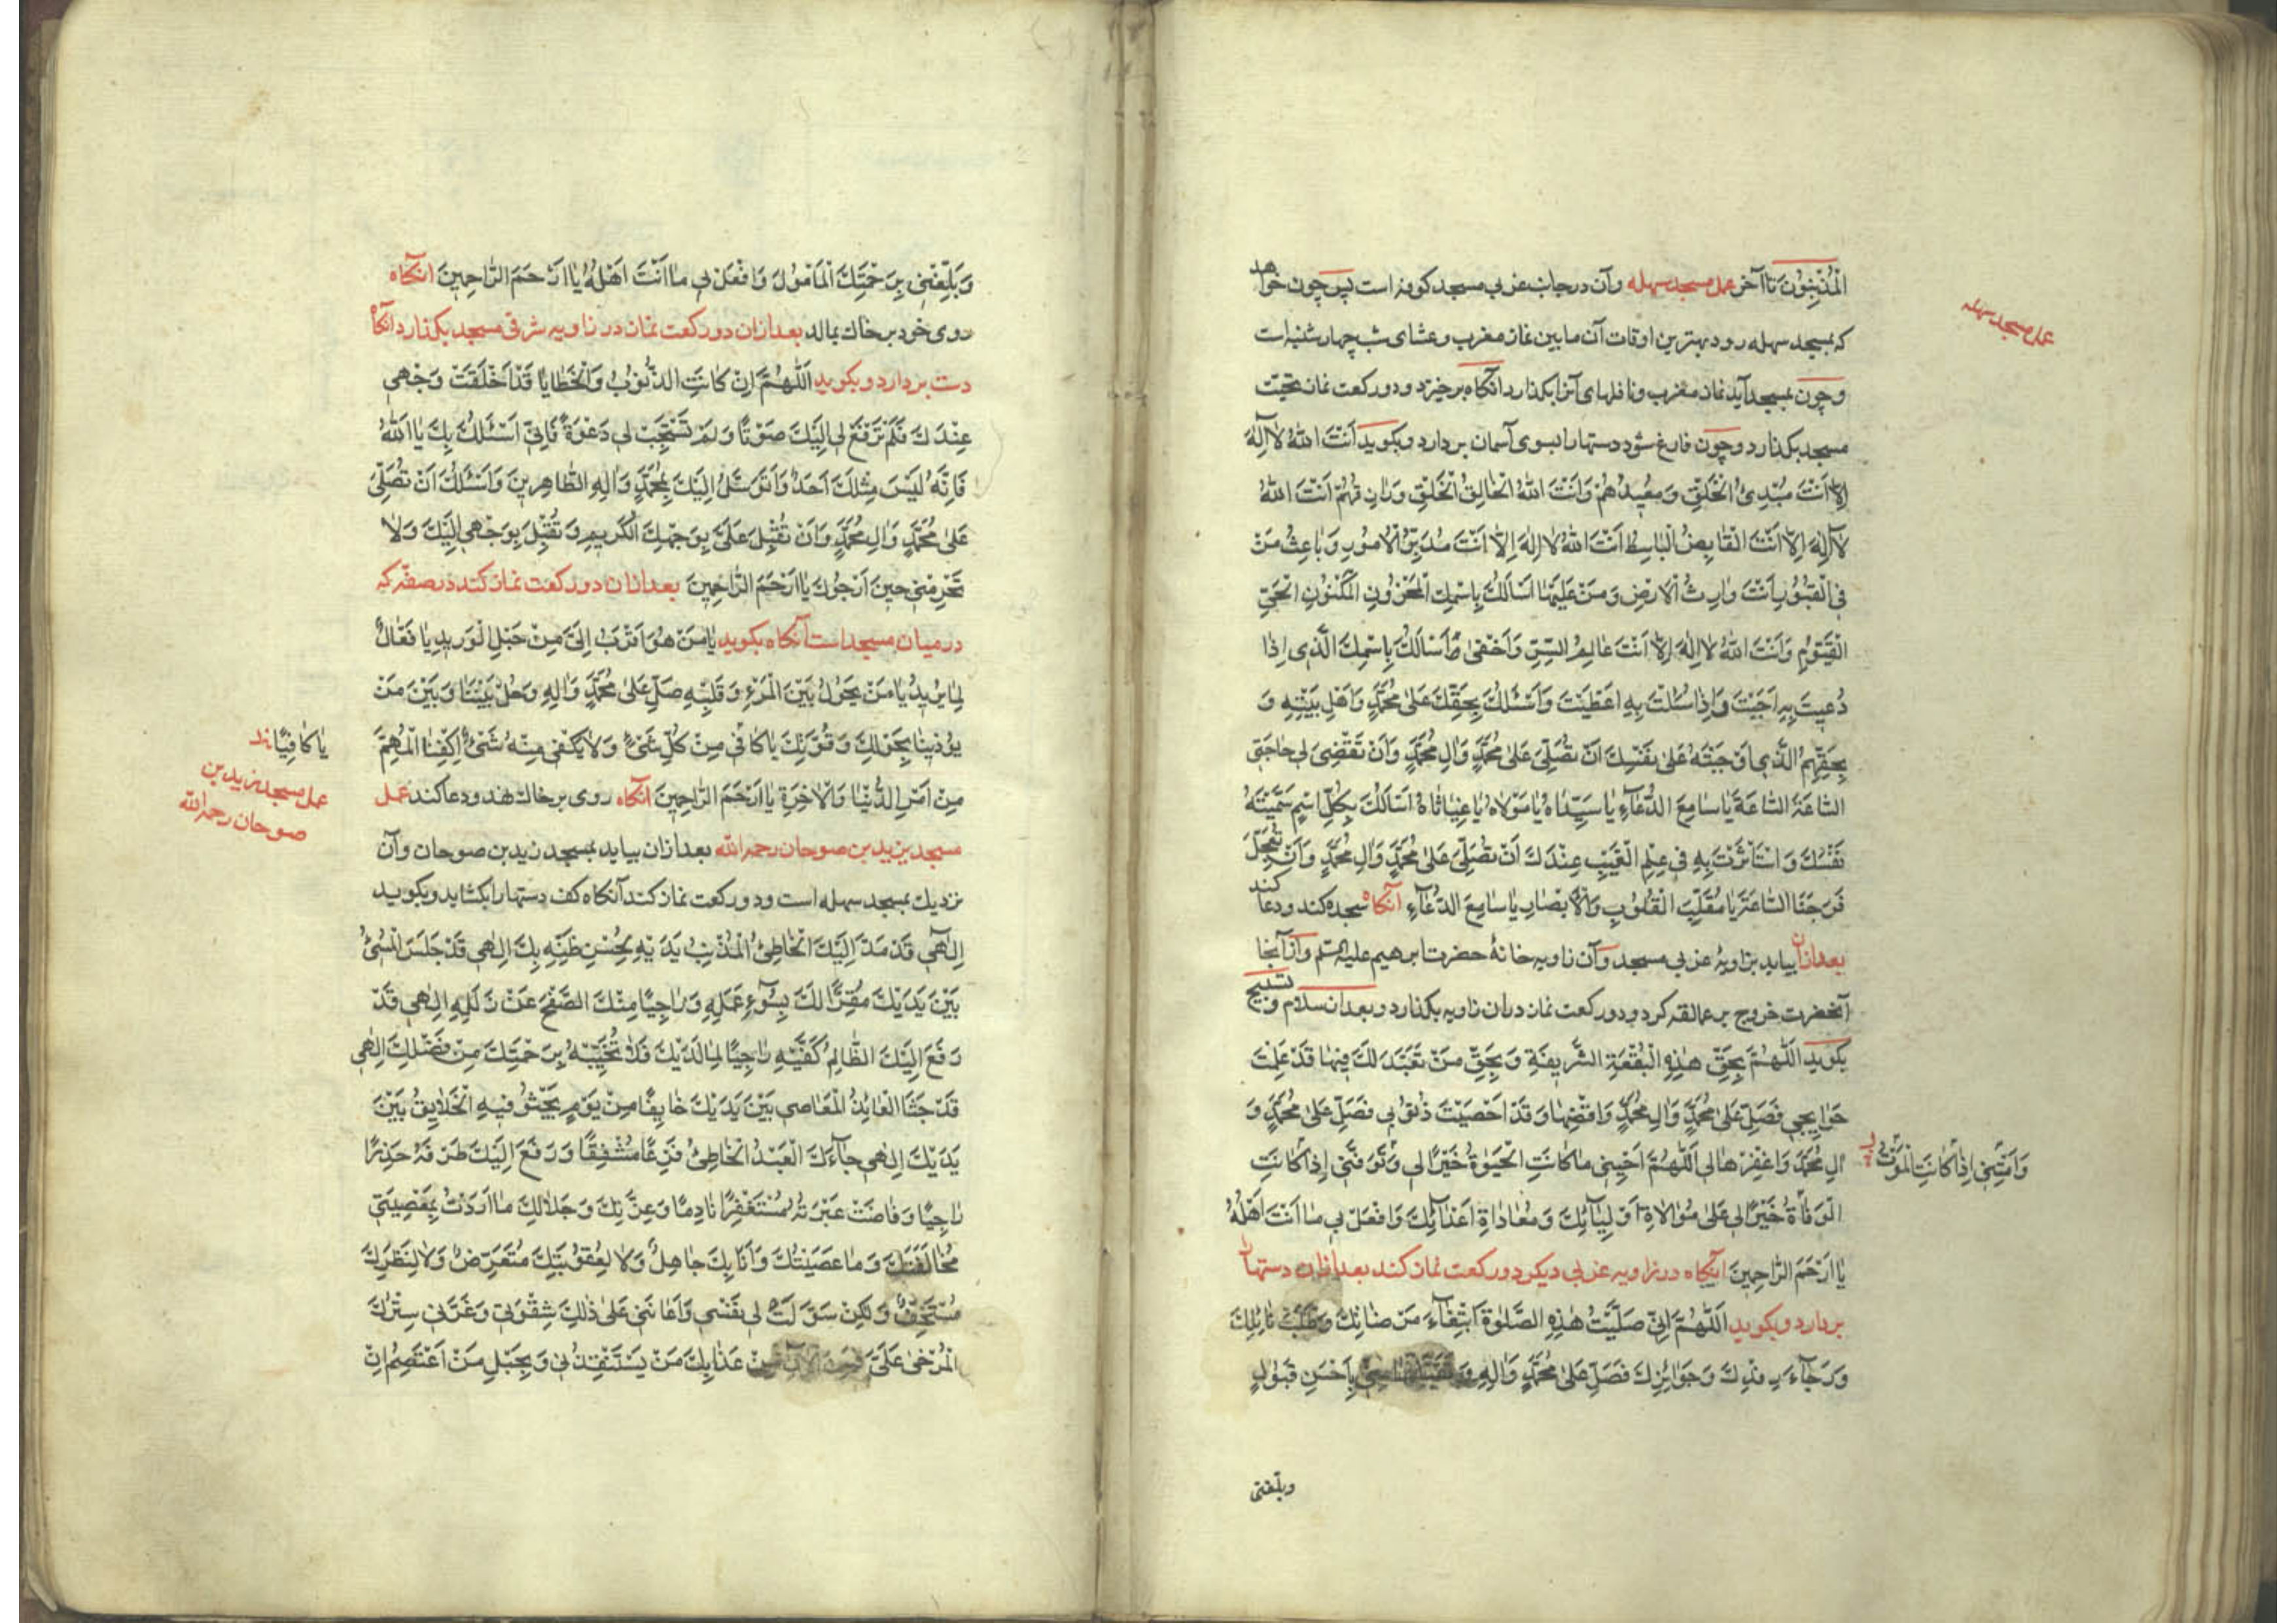 عمل مسجد سهله
الْمُذْنِبُونَ تا آخر عمل مسجد سهله وآن در جانب غربی مسجد کوفه است پس چون خواهد
که بمسجد سهله رود بهترین اوقات آن ما بین نماز مغرب وعشای شب چهارشنبه است
وچون بمسجد آید نماز مغرب ونافلهای آنرا بکذارد آنکاه برخیزد ودو رکعت نماز تحیّت
مسجد بکذارد وچون فارغ شود دستها را بسوی آسمان بردارد وبکوید اَنْتَ اللّهُ لاٰ اِلٰهَ
اِلاّٰ اَنْتَ مُبْدِئُ الْخَلْقِ وَمُعِيدُهُمْ وَاَنْتَ اللّهُ الْخٰالِقُ الْخَلْقِ وَرٰازِقُهُمْ اَنْتَ اللّهُ
لاٰ اِلٰهَ اِلاّٰ اَنْتَ الْقٰابِضُ الْبٰاسِطُ اَنْتَ اللّهُ لاٰ اِلٰهَ اِلاّٰ اَنْتَ مُدَبِّرُ الْاُمُورِ وَبٰاعِثُ مَنْ
فِي الْقُبُورِ اَنْتَ وٰارِثُ الْاَرْضِ وَمَنْ عَلَيْهٰا اَسْاَلُكَ بِاسْمِكَ الْمَخْزُونِ الْمَكْنُونِ الْحَيِّ
الْقَيُّومِ وَاَنْتَ اللّهُ لاٰ اِلٰهَ اِلاّٰ اَنْتَ عٰالِمُ السِّرِّ وَاَخْفىٰ وَاَسْاَلُكَ بِاسْمِكَ الَّذِي اِذٰا
دُعِيتَ بِهِ اَجَبْتَ وَاِذٰا سُئِلْتَ بِهِ اَعْطَيْتَ وَاَسْئَلُكَ بِحَقِّكَ عَلىٰ مُحَمَّدٍ وَاَهْلِ بَيْتِهِ وَ
بِحَقِّهِمُ الَّذِي اَوْجَبْتَهُ عَلىٰ نَفْسِكَ اَنْ تُصَلِّيَ عَلىٰ مُحَمَّدٍ وَاٰلِ مُحَمَّدٍ وَاَنْ تَقْضِيَ لِي حٰاجَتِي
السّٰاعَةَ السّٰاعَةَ يٰا سٰامِعَ الدُّعٰآءِ يٰا سَيِّدٰاهُ يٰا مَوْلاٰهُ يٰا غِيٰاثٰاهُ اَسْاَلُكَ بِكُلِّ اسْمٍ سَمَّيْتَهُ
نَفْسَكَ وَاسْتَاْثَرْتَ بِهِ فِي عِلْمِ الْغَيْبِ عِنْدَكَ اَنْ تُصَلِّيَ عَلىٰ مُحَمَّدٍ وَاٰلِ مُحَمَّدٍ وَاَنْ تُعَجِّلَ
فَرَجَنَا السّٰاعَةَ يٰا مُقَلِّبَ الْقُلُوبِ وَالْاَبْصٰارِ يٰا سٰامِعَ الدُّعٰآءِ آنکاه سجده کند ودعا کند
بعد ازان بیاید بزاویهٔ غربی مسجد وآن زاویه خانهٔ حضرت ابرهیم علیه السّلم واز آنجا
آنحضرت خروج بر عمالقه کرد ودو رکعت نماز دران زاویه بکذارد وبعد از سلام وتسبیح
بکوید اَللّهُمَّ بِحَقِّ هٰذِهِ الْبُقْعَةِ الشَّرِيفَةِ وَبِحَقِّ مَنْ تَعَبَّدَ لَكَ فِيهٰا قَدْ عَلِمْتَ
حَوٰايِجِي فَصَلِّ عَلىٰ مُحَمَّدٍ وَاٰلِ مُحَمَّدٍ وَاقْضِهٰا وَقَدْ اَحْصَيْتَ ذُنُوبِي فَصَلِّ عَلىٰ مُحَمَّدٍ وَ
اٰلِ مُحَمَّدٍ وَاغْفِرْهٰا لِي اَللّهُمَّ اَحْيِنِي مٰا كٰانَتِ الْحَيٰوةُ خَيْرًا لِي وَتَوَفَّنِي اِذٰا كٰانَتِ
وَاَمِتْنِي اِذٰا كٰانَتِ الْمَوْتُ
الْوَفٰاةُ خَيْرًا لِي عَلىٰ مُوٰالاٰةِ اَوْلِيٰآئِكَ وَمُعٰادٰاةِ اَعْدٰآئِكَ وَافْعَلْ بِي مٰا اَنْتَ اَهْلُهُ
يٰا اَرْحَمَ الرّٰاحِمِينَ آنکاه در زاویه غربی دیکر دو رکعت نماز کند بعد ازان دستها
بردارد وبکوید اَللّهُمَّ اِنِّي صَلَّيْتُ هٰذِهِ الصَّلٰوةَ ابْتِغٰآءَ مَرْضٰاتِكَ وَطَلَبَ نٰائِلِكَ
وَرَجٰآءَ رِفْدِكَ وَجَوٰائِزِكَ فَصَلِّ عَلىٰ مُحَمَّدٍ وَاٰلِهِ وَتَقَبَّلْهٰا مِنِّي بِاَحْسَنِ قَبُولٍ
وبلّغنی
وَبَلِّغْنِي بِرَحْمَتِكَ الْمَاْمُولَ وَافْعَلْ بِي مٰا اَنْتَ اَهْلُهُ يٰا اَرْحَمَ الرّٰاحِمِينَ آنکاه
روی خود بر خاك بمالد بعد ازان دو رکعت نماز در زاویه شرقی مسجد بکذارد آنکاه
دست بردارد وبکوید اَللّهُمَّ اِنْ كٰانَتِ الذُّنُوبُ وَالْخَطٰايٰا قَدْ اَخْلَقَتْ وَجْهِي
عِنْدَكَ فَلَمْ تَرْفَعْ لِي اِلَيْكَ صَوْتًا وَلَمْ تَسْتَجِبْ لِي دَعْوَةً فَاِنِّي اَسْئَلُكَ بِكَ يٰا اَللّهُ
فَاِنَّهُ لَيْسَ مِثْلَكَ اَحَدٌ وَاَتَوَسَّلُ اِلَيْكَ بِمُحَمَّدٍ وَاٰلِهِ الطّٰاهِرِينَ وَاَسْئَلُكَ اَنْ تُصَلِّيَ
عَلىٰ مُحَمَّدٍ وَاٰلِ مُحَمَّدٍ وَاَنْ تُقْبِلَ عَلَيَّ بِوَجْهِكَ الْكَرِيمِ وَتُقْبِلَ بِوَجْهِي اِلَيْكَ وَلاٰ
تَحْرِمْنِي حِينَ اَرْجُوكَ يٰا اَرْحَمَ الرّٰاحِمِينَ بعد ازان دو رکعت نماز کند در صفّه که
در میان مسجد است آنکاه بکوید يٰا مَنْ هُوَ اَقْرَبُ اِلَيَّ مِنْ حَبْلِ الْوَرِيدِ يٰا فَعّٰالُ
لِمٰا يُرِيدُ يٰا مَنْ يَحُولُ بَيْنَ الْمَرْءِ وَقَلْبِهِ صَلِّ عَلىٰ مُحَمَّدٍ وَاٰلِهِ وَحُلْ بَيْنَنٰا وَبَيْنَ مَنْ
يُؤْذِينٰا بِحَوْلِكَ وَقُوَّتِكَ يٰا كٰافِي مِنْ كُلِّ شَيْءٍ وَلاٰ يَكْفِي مِنْهُ شَيْءٌ اِكْفِنَا الْمُهِمَّ
يٰا كٰافِيًا
مِنْ اَمْرِ الدُّنْيٰا وَالْاٰخِرَةِ يٰا اَرْحَمَ الرّٰاحِمِينَ آنکاه روی بر خاك نهد ودعا کند عمل
عمل مسجد یزید بن
صوحان رحمه الله
مسجد یزید بن صوحان رحمه الله بعد ازان بیاید بمسجد زید بن صوحان وآن
نزدیك بمسجد سهله است ودو رکعت نماز کند آنکاه کف دستها را بکشاید وبکوید
اِلٰهِي قَدْ مَدَّ اِلَيْكَ الْخٰاطِئُ الْمُذْنِبُ يَدَيْهِ بِحُسْنِ ظَنِّهِ بِكَ اِلٰهِي قَدْ جَلَسَ الْمُسِيْءُ
بَيْنَ يَدَيْكَ مُقِرًّا لَكَ بِسُوٓءِ عَمَلِهِ وَرٰاجِيًا مِنْكَ الصَّفْحَ عَنْ زَلَلِهِ اِلٰهِي قَدْ
رَفَعَ اِلَيْكَ الظّٰالِمُ كَفَّيْهِ رٰاجِيًا لِمٰا لَدَيْكَ فَلاٰ تُخَيِّبْهُ بِرَحْمَتِكَ مِنْ فَضْلِكَ اِلٰهِي
قَدْ جَثَا الْعٰائِدُ الْمَعٰاصِي بَيْنَ يَدَيْكَ خٰايِفًا مِنْ يَوْمٍ يَجْثُو فِيهِ الْخَلاٰيِقُ بَيْنَ
يَدَيْكَ اِلٰهِي جٰآءَكَ الْعَبْدُ الْخٰاطِئُ فَزِعًا مُشْفِقًا وَرَفَعَ اِلَيْكَ طَرْفَهُ حَذِرًا
رٰاجِيًا وَفٰاضَتْ عَبْرَتُهُ مُسْتَغْفِرًا نٰادِمًا وَعِزَّتِكَ وَجَلاٰلِكَ مٰا اَرَدْتُ بِمَعْصِيَتِي
مُخٰالَفَتَكَ وَمٰا عَصَيْتُكَ وَاَنَا بِكَ جٰاهِلٌ وَلاٰ لِعُقُوبَتِكَ مُتَعَرِّضٌ وَلاٰ لِنَظَرِكَ
مُسْتَخِفٌّ وَلٰكِنْ سَوَّلَتْ لِي نَفْسِي وَاَعٰانَتْنِي عَلىٰ ذٰلِكَ شِقْوَتِي وَغَرَّنِي سِتْرُكَ
الْمُرْخىٰ عَلَيَّ فَمِنَ الْاٰنِ مِنْ عَذٰابِكَ مَنْ يَسْتَنْقِذُنِي وَبِحَبْلِ مَنْ اَعْتَصِمُ اِنْ